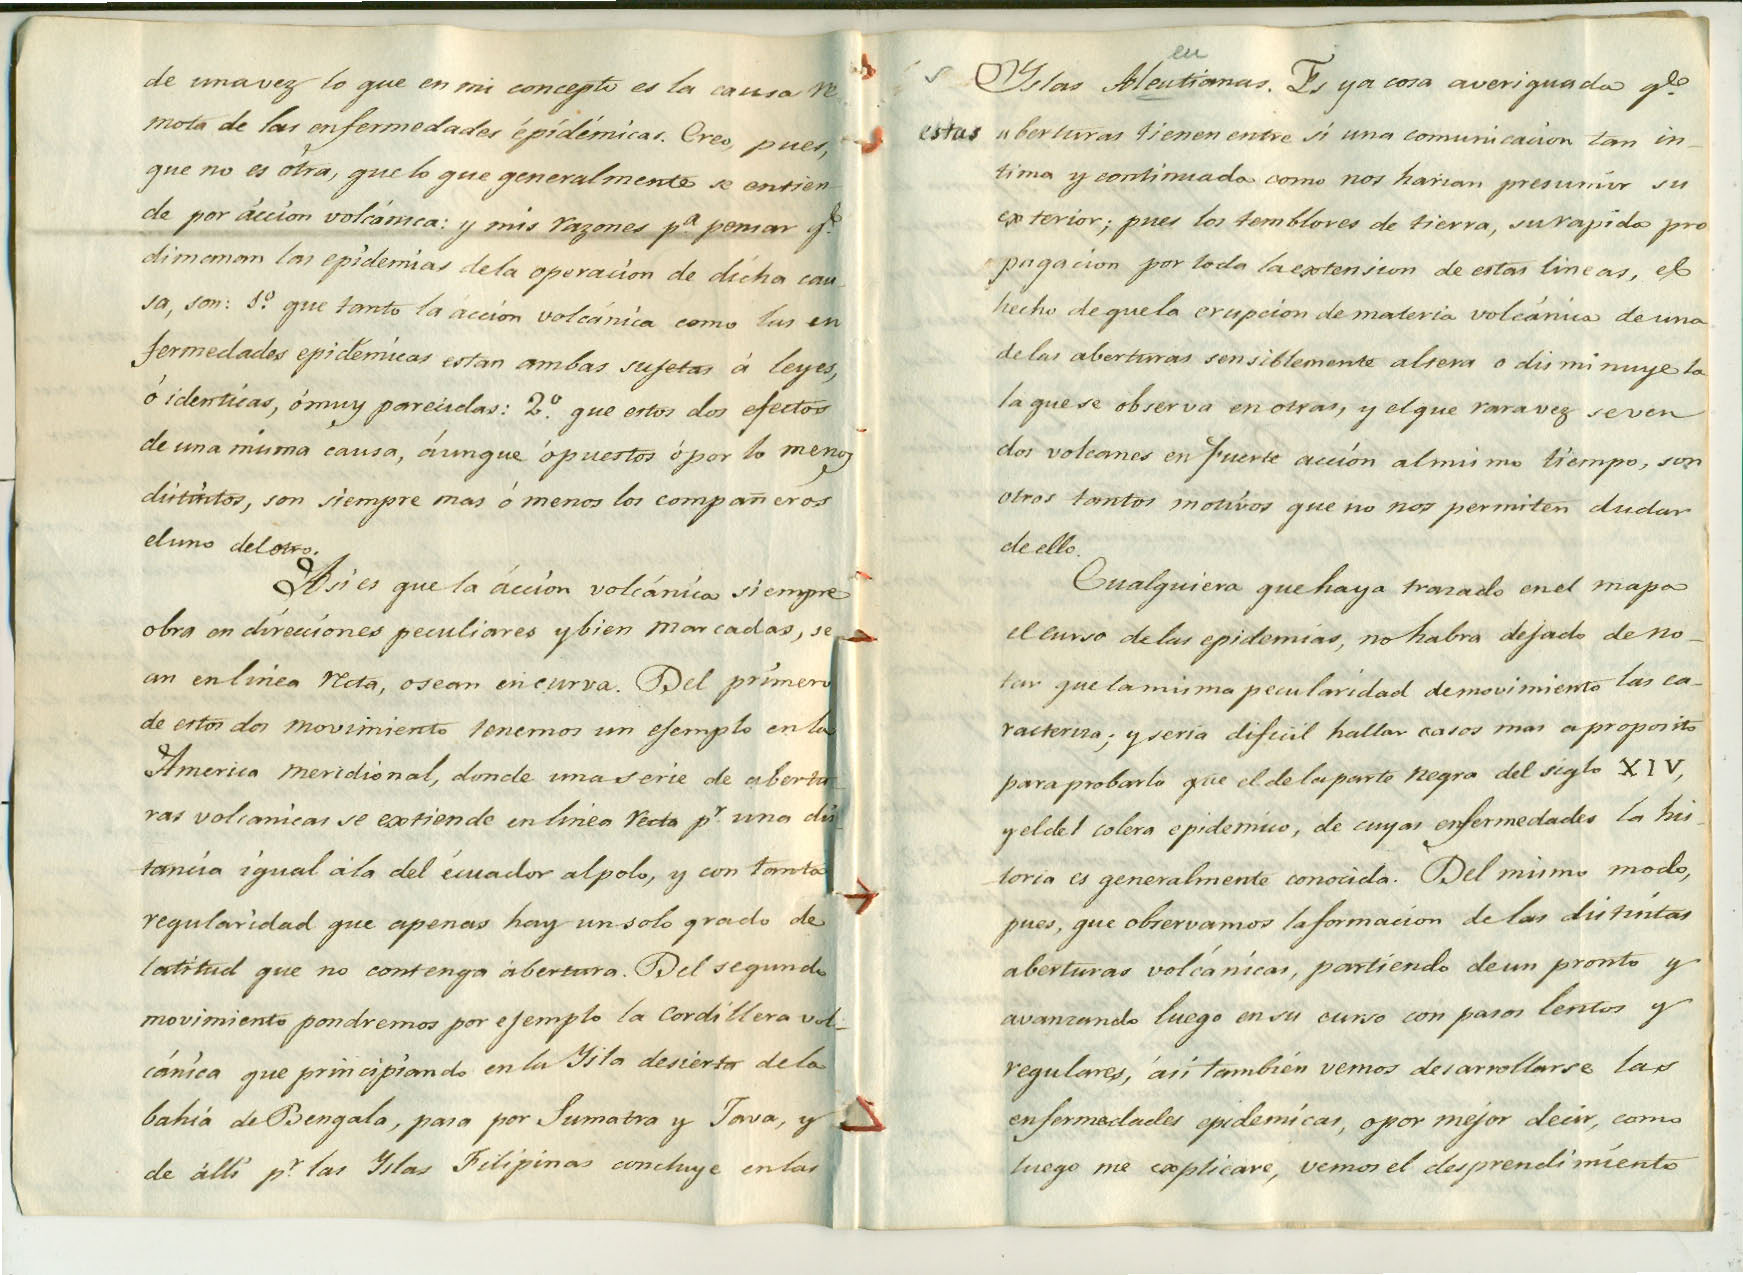 de una vez lo que en mi concepto es la causa re
mota de las enfermedades épidémicas. Creo, pues,
que no es otra, que lo que generalmente se entien
de por áccion volcánica: y mis razones pª pensar qᵉ
dimanan las epidemias de la operacion de dicha cau
sa, son: 1º que tanto la áccion volcánica como las en
fermedades epidémicas estan ambas sujetas á leyes,
ó identicas, ó muy parecidas: 2º que estos dos efectos
de una misma causa, áunque ópuestos ó por lo menos
distintos, son siempre mas ó menos los compañeros
el uno del otro.
Asi es que la áccion volcánica siempre
obra en direcciones peculiares y bien marcadas, se
an en linea recta, o sean en curva. Del primero
de estos dos movimiento tenemos un ejemplo en la
America meridional, donde una serie de abertu-
ras volcanicas se extiende en linea recta pʳ una dis-
tancia igual á la del écuador al polo, y con tanta
regularidad que apenas hay un solo grado de
latitud que no contenga abertura. Del segundo
movimiento pondremos por ejemplo la Cordillera vol-
cánica que principiando en la Ysla desierta de la
bahiá de Bengala, pasa por Sumatra y Java, y
de álli pʳ las Yslas Filipinas concluye en las
eu
s Yslas Aleutianas. Es ya cosa averiguada qᵉ
estas aberturas tienen entre si una comunicacion tan in-
tima y continuada como nos harian presumir su
exterior; pues los temblores de tierra, su rapida pro
pagacion por toda la extension de estas lineas, el
hecho de que la erupcion de materia volcánica de una
de las aberturas sensiblemente altera o disminuye la
la que se observa en otras, y el que rara vez se ven
dos volcanes en fuerte acción al mismo tiempo, son
otros tantos motivos que no nos permiten dudar
de ello.
Cualquiera que haya trazado en el mapa
el curso de las epidemias, no habra dejado de no-
tar que la misma peculiaridad de movimiento las ca-
racteriza; y seria dificil hallar casos mas a proposito
para probarlo que el de la parte negra del siglo XIV,
y el del colera epidemico, de cuyas enfermedades la his-
toria es generalmente conocida. Del mismo modo,
pues, que observamos la formacion de las distintas
aberturas volcánicas, partiendo de un pronto y
avanzando luego en su curso con pasos lentos y
regulares, ási también vemos desarrollarse las
enfermedades epidemicas, o por mejor decir, como
luego me explicare, vemos el desprendimiento